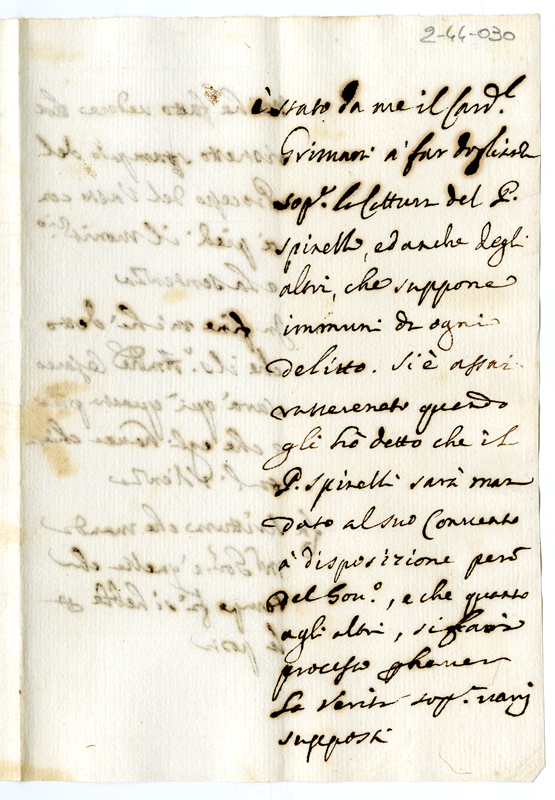 2-44-030
è stato da me il Card.l
Grimani à far doglianze
sop.a la Cattura del P.
Spinelli, ed anche degli
altri, che suppone
immuni di ogni
delitto. Si è assai
rasserenato quando
gli hò detto che il
P. Spinelli sarà man
dato al suo Convento
à disposizione però
del Gov.o, e che quanto
agli altri, si farà
processo p haver
la verità sop.a varij
supposti